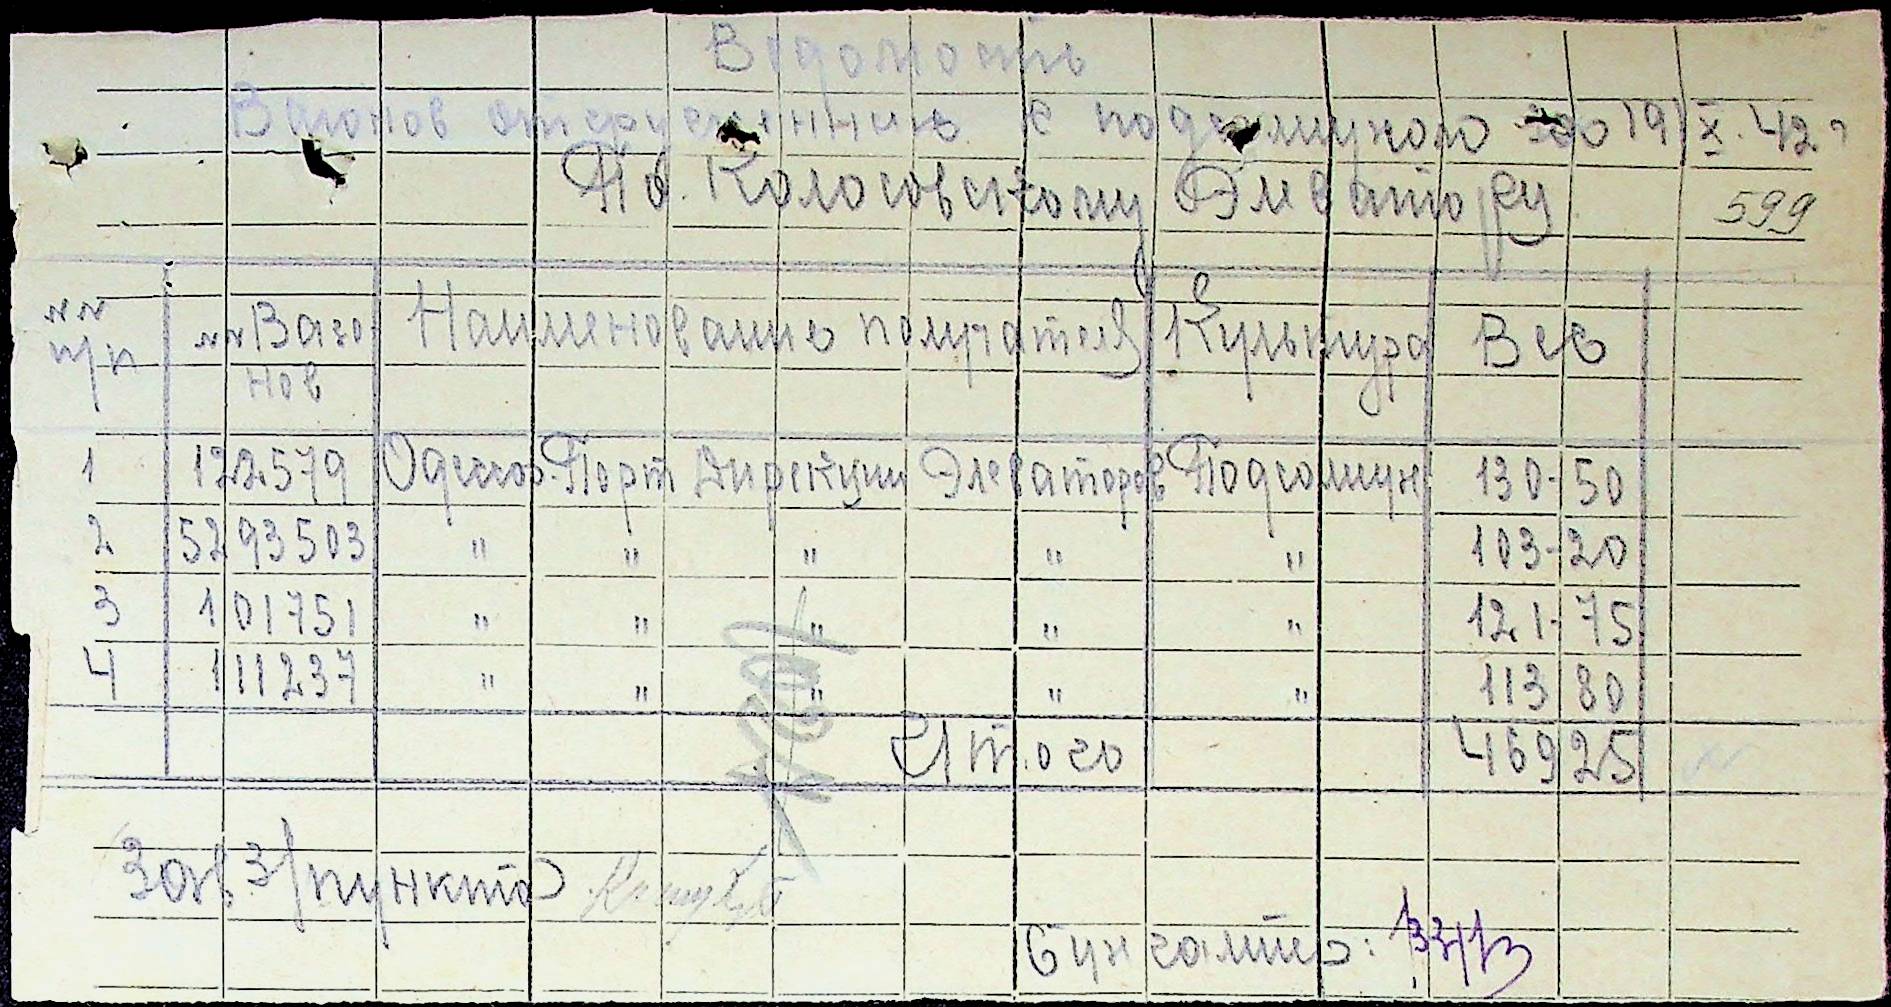 Ведомость
Вагонов отгруженных с подсолнухом до 19/X.42 г
По Колосовскому Элеватору
599
№№ п/п №№ Ваго нов Наименование получателя Культура Вес
1 122579 Одесса Порт Дирекции Элеваторов Подсолнух 130-50
2 5293503 " " " " " 103-20
3 101751 " " " " " 121-75
4 111237 " " " " " 113 80
Итого 46925
Зав З/пункта
Бухгалтер: